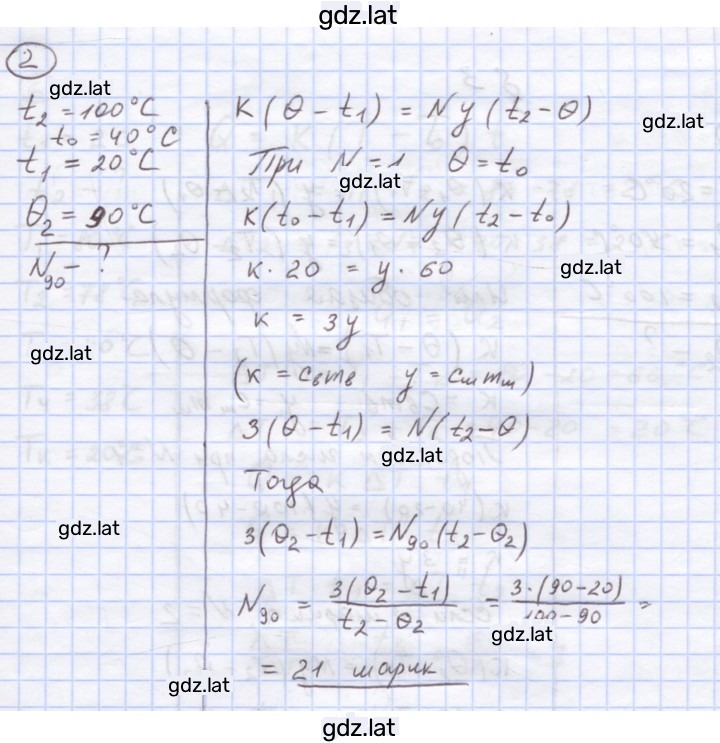 gdz.lat
2
gdz.lat
t₂ = 100°C
t₀ = 40°C
t₁ = 20°C
θ₂ = 90°C
N₉₀ - ?
gdz.lat
K(θ - t₁) = Ny(t₂ - θ)
gdz.lat
При N = 1 θ = t₀
gdz.lat
K(t₀ - t₁) = Ny(t₂ - t₀)
K · 20 = y · 60
gdz.lat
K = 3y
(K = cвmв y = cшmш)
3(θ - t₁) = N(t₂ - θ)
gdz.lat
Тогда
gdz.lat
3(θ₂ - t₁) = N₉₀(t₂ - θ₂)
N₉₀ = 3(θ₂ - t₁) / t₂ - θ₂ = 3·(90 - 20) / 100 - 90 =
gdz.lat
= 21 шарик
gdz.lat
gdz.lat